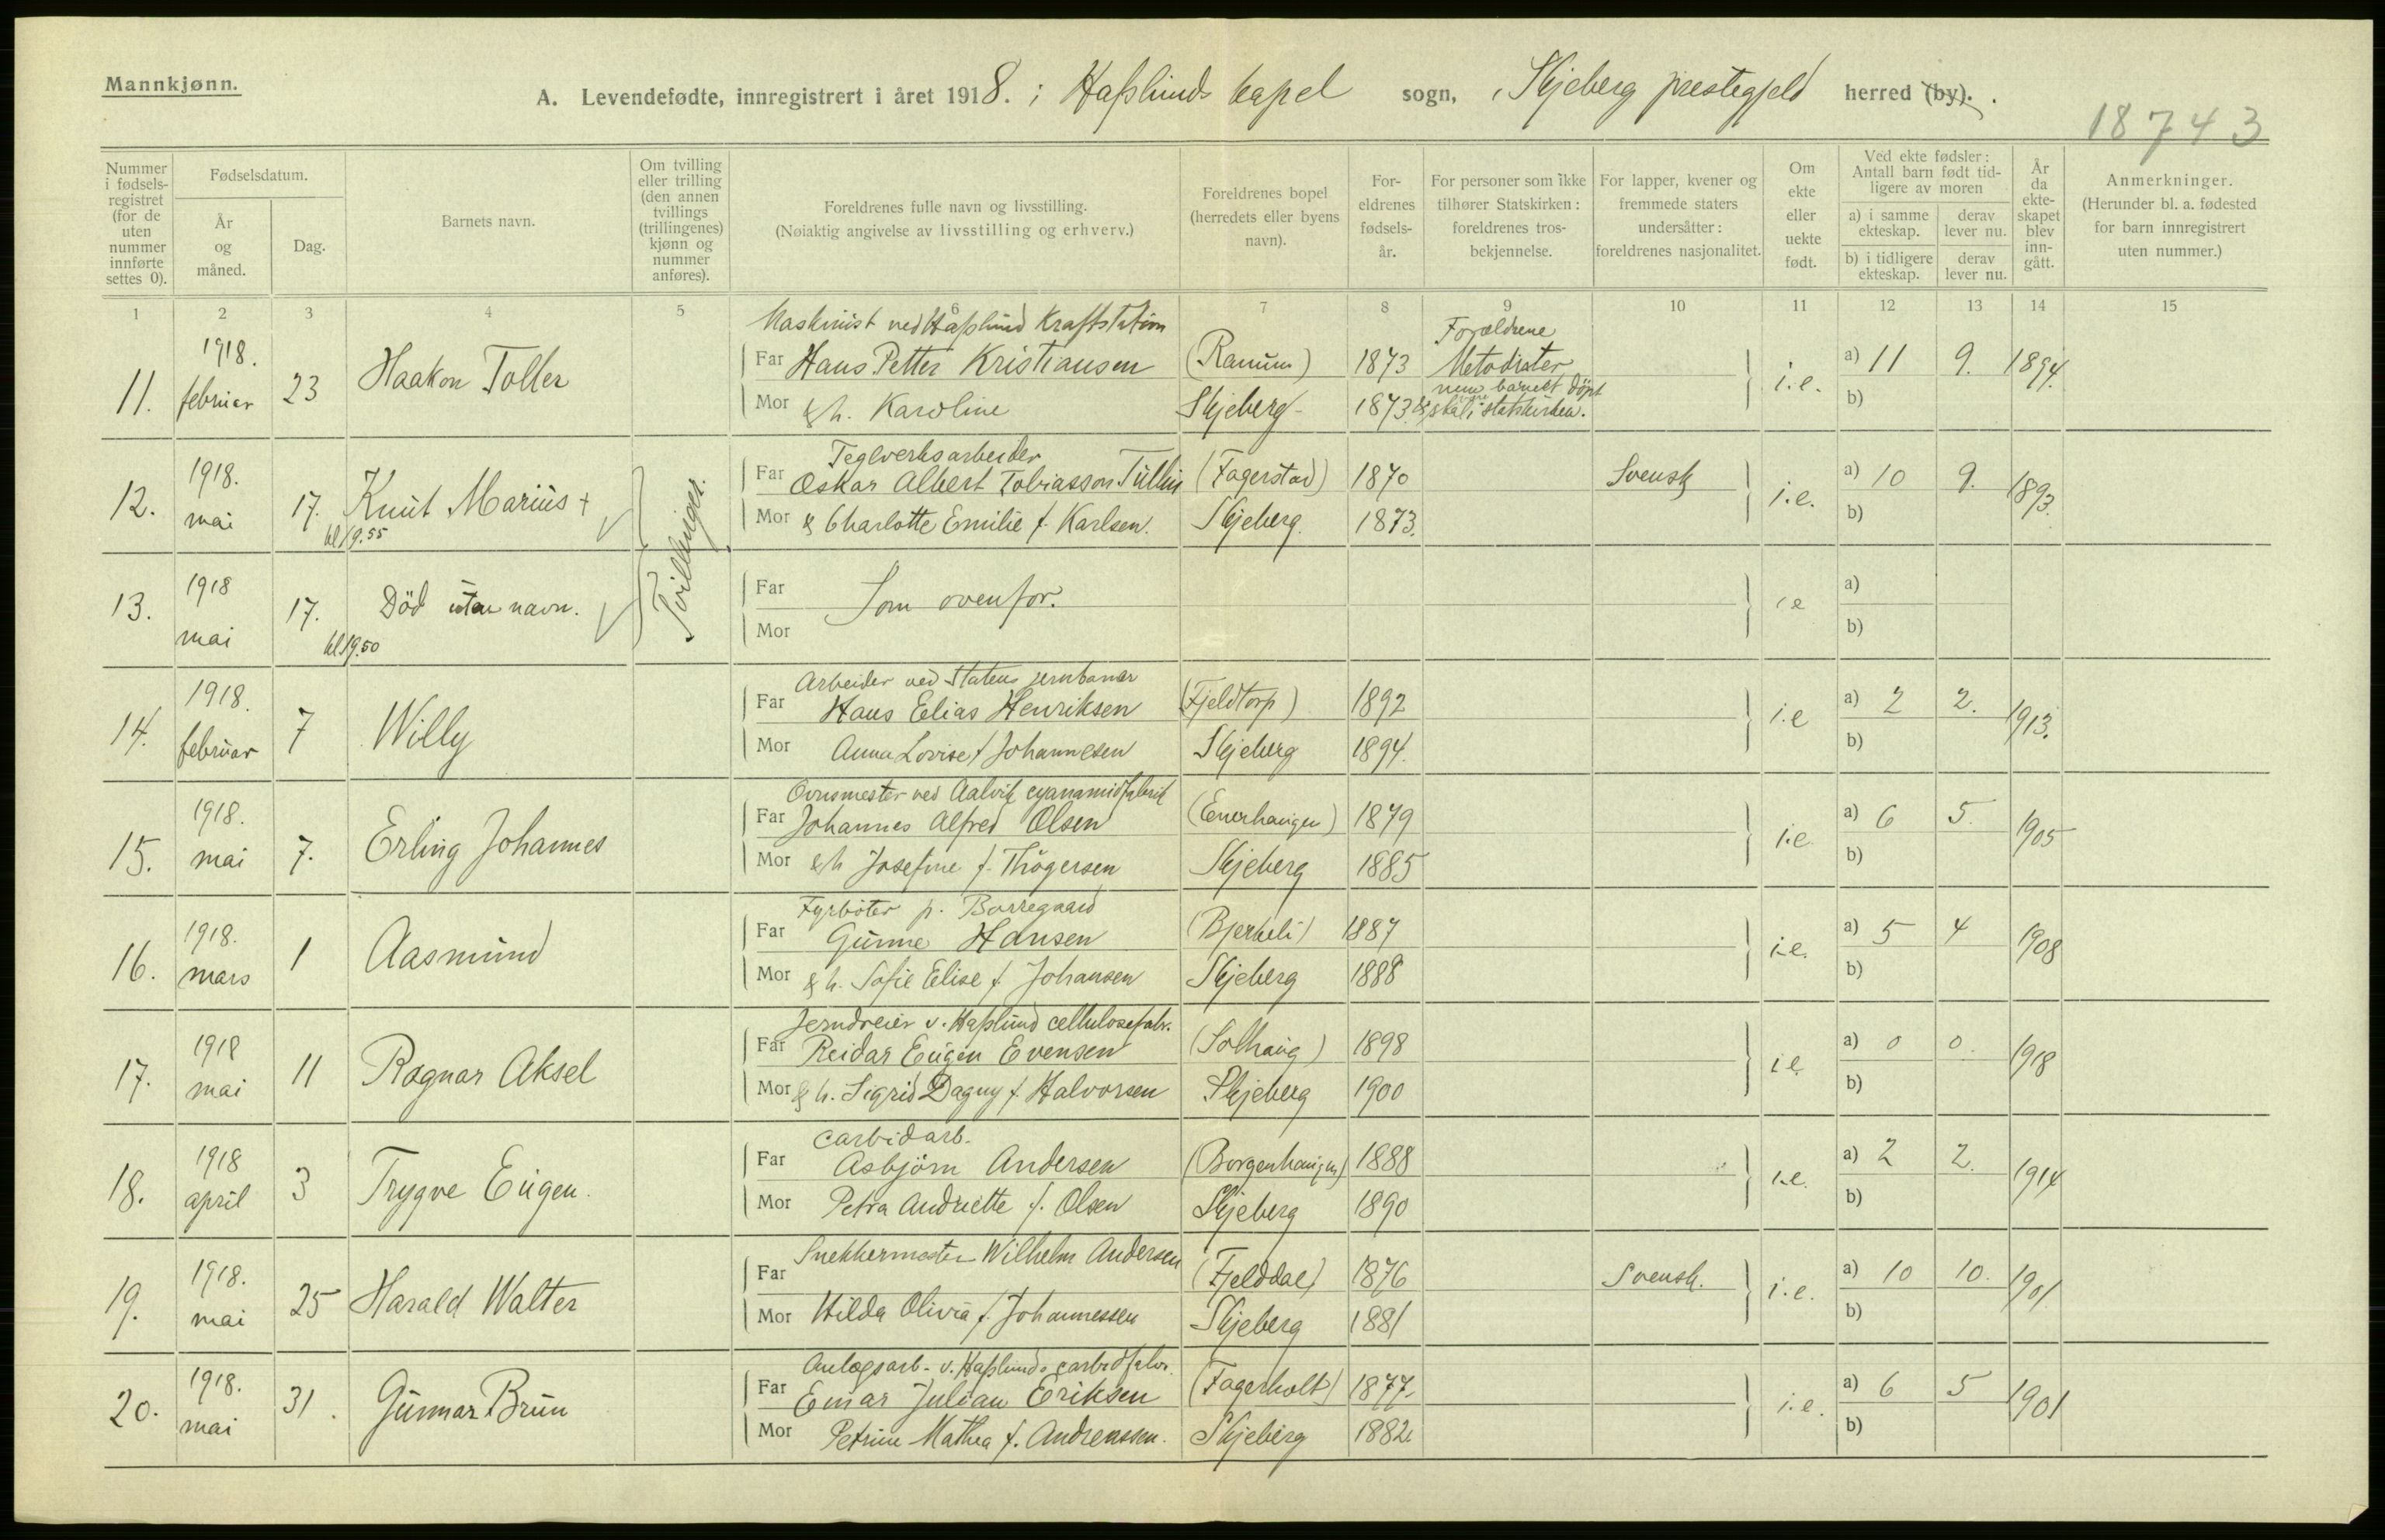 Mannkjønn.
A. Levendefødte, innregistrert i året 1918. i Hafslunds kapel sogn, i Skjeberg prestegjeld herred (by).
18743
Nummer i fødsels-registret (for de uten nummer innførte settes 0).
Fødselsdatum.
År og måned.
Dag.
Barnets navn.
Om tvilling eller trilling (den annen tvillings (trillingenes) kjønn og nummer anføres).
Foreldrenes fulle navn og livsstilling.
(Nøiaktig angivelse av livsstilling og erhverv.)
Foreldrenes bopel (herredets eller byens navn).
For-eldrenes fødsels-år.
For personer som ikke tilhører Statskirken: foreldrenes tros-bekjennelse.
For lapper, kvener og fremmede staters undersåtter: foreldrenes nasjonalitet.
Om ekte eller uekte født.
Ved ekte fødsler: Antall barn født tid-ligere av moren
a) i samme ekteskap.
derav lever nu.
b) i tidligere ekteskap.
derav lever nu.
År da ekte-skapet blev inn-gått.
Anmerkninger.
(Herunder bl. a. fødested for barn innregistrert uten nummer.)
1 2 3 4 5 6 7 8 9 10 11 12 13 14 15
Maskinist ved Hafslund Kraftstation
11. 1918. februar 23 Haakon Toller
Far Hans Petter Kristiansen (Ranum) 1873 Forældrene Metodister
Mor & h. Karoline Skjeberg 1873 barnet döpt i statskirken.
i.e. a) 11 9. 1894.
b)
Teglverksarbeider
12. 1918. mai 17. Knut Marius +
kl 19.55
Tvillinger.
Far Oskar Albert Tobiasson Tullin (Fagerstad) 1870 Svensk
Mor & Charlotte Emilie f. Karlsen. Skjeberg. 1873.
i.e. a) 10 9. 1893.
b)
13. 1918 mai 17. Död uten navn.
kl 19.50
Far Som ovenfor.
Mor
i e a)
b)
Arbeider ved Statens jernbaner
14. 1918. februar 7 Willy
Far Hans Elias Henriksen (Fjeldtorp) 1892
Mor Anna Lovise f Johannesen Skjeberg 1894.
i.e a) 2 2. 1913.
b)
Ovnsmester ved Aalvik cyanamidfabrik
15. 1918. mai 7. Erling Johannes
Far Johannes Alfred Olsen (Enerhaugen) 1879
Mor & h Josefine f. Thögersen Skjeberg 1885
i.e. a) 6 5. 1905
b)
Fyrböter p. Borregaard
16. 1918. mars 1 Aasmund
Far Gunne Hansen (Bjerkeli) 1887
Mor & h. Sofie Elise f Johansen Skjeberg 1888
i.e. a) 5 4 1908
b)
Jerndreier v. Hafslund cellulosefabr.
17. 1918 mai 11 Ragnar Aksel
Far Reidar Eugen Evensen (Solhaug) 1898
Mor & h. Sigrid Dagny f. Halvorsen Skjeberg 1900
i e a) 0 0. 1918
b)
Carbidarb.
18. 1918 april 3 Trygve Eugen.
Far Asbjörn Andersen (Borgenhaugen) 1888
Mor Petra Andriette f. Olsen Skjeberg 1890
i.e. a) 2 2. 1914
b)
19. 1918. mai 25 Harald Walter
Far Snekkermester Wilhelm Andersen (Fjelddal) 1876 Svensk.
Mor Hilda Olivia f. Johannessen Skjeberg 1881
i.e. a) 10 10. 1901
b)
Anlegsarb. v. Hafslunds carbidfabr.
20. 1918. mai 31. Gunnar Brun
Far Einar Julian Eriksen (Fagerholt) 1877.
Mor Petrine Mathea f. Andreassen. Skjeberg 1882.
i.e. a) 6 5 1901
b)